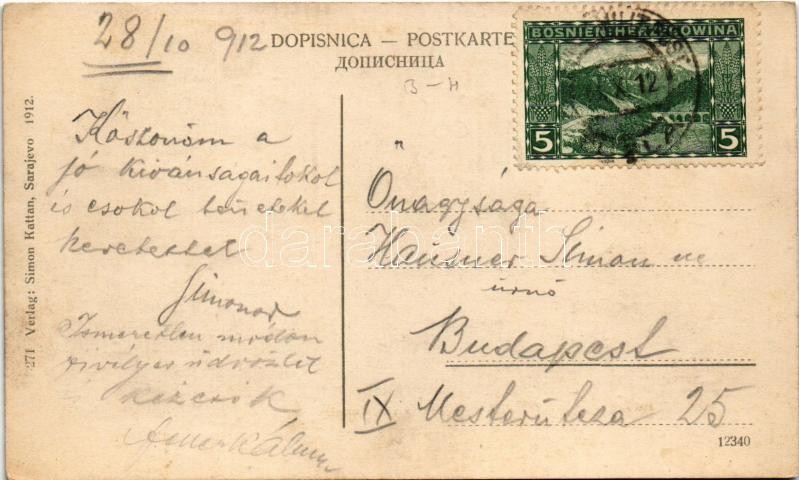 28/10 912
DOPISNICA — POSTKARTE
ДОПИСНИЦА
B-H
BOSNIEN-HERZEGOWINA
X 12
5 5
271 Verlag: Simon Kattan, Sarajevo 1912.
Köszönöm a
jó kivánságaitokat
és csokol benneteket
szeretettel
Simonod
Ismeretlen módon
szivélyes üdvözlet
és kézcsók
Őnagysága
Hausner Simon né
úrnő
Budapest
IX Mester útcza 25
12340
darabanth